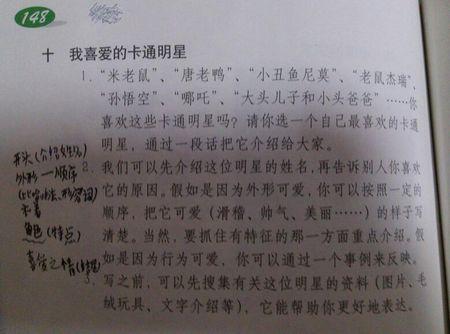 148
十 我喜爱的卡通明星
1.“米老鼠”、“唐老鸭”、“小丑鱼尼莫”、“老鼠杰瑞”、
“孙悟空”、“哪吒”、“大头儿子和小头爸爸”……你
喜欢这些卡通明星吗？请你选一个自己最喜欢的卡通
明星，通过一段话把它介绍给大家。
2.我们可以先介绍这位明星的姓名，再告诉别人你喜欢
它的原因。假如是因为外形可爱，你可以按照一定的
顺序，把它可爱（滑稽、帅气、美丽……）的样子写
清楚。当然，要抓住有特征的那一方面重点介绍。假
如是因为行为可爱，你可以通过一个事例来反映。
写之前，可以先搜集有关这位明星的资料（图片、毛
绒玩具、文字介绍等），它能帮助你更好地表达。
开头(介绍
外形—顺序
(特点)
喜爱之情